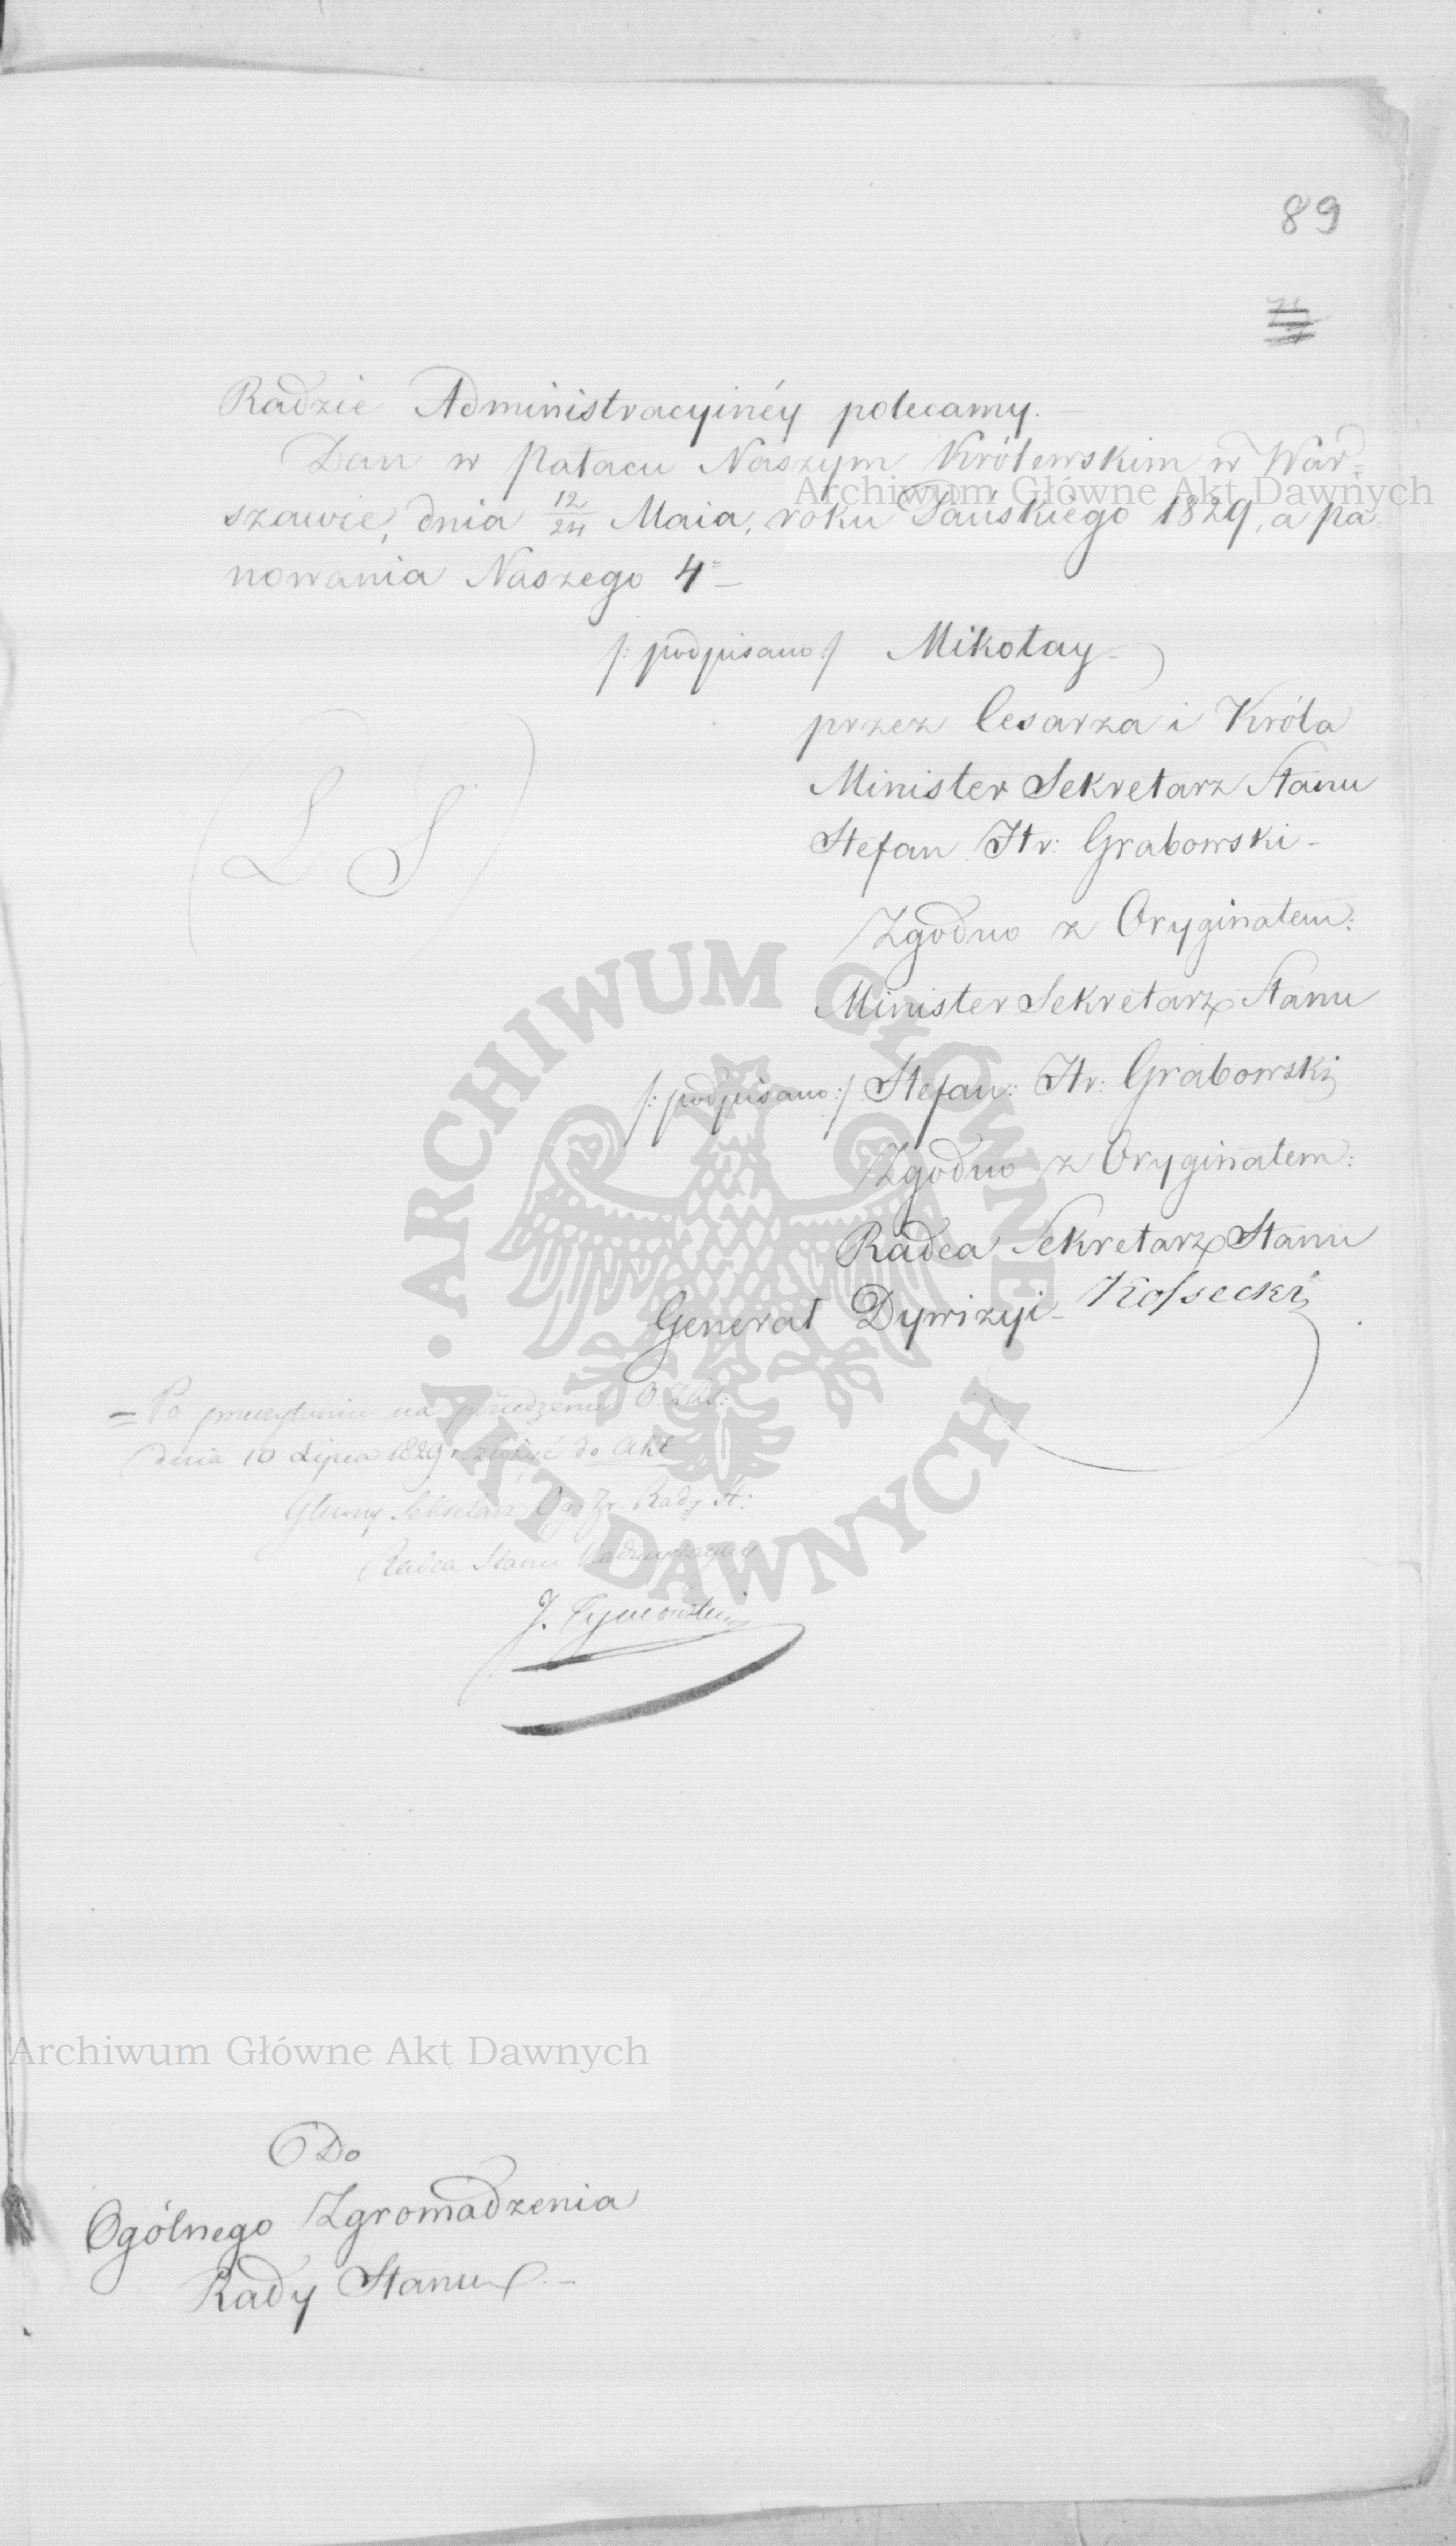 89
Radzie Administracyinéy polecamy. —
Dan w Pałacu Naszym Królewskim w War=
szawie, dnia 12/24 Maia, roku Pańskiego 1829, a pa
nowania Naszego 4=
/: podpisano :/ Mikołay
przez Cesarza i Króla
Minister Sekretarz Stanu
Stefan Hr: Grabowski -
(L S)
Zgodno z Oryginałem:
Minister Sekretarz Stanu
/: podpisano :/ Stefan: Hr: Grabowski
Zgodno z Oryginałem:
Radca Sekretarz Stanu
Generał Dywizyi - Kossecki
= Po przeczytaniu na posiedzeniu O. Zgr:
dnia 10 Lipca 1829 r. złożyć do Akt
Główny Sekretarz Ogo Zr. Rady St:
Radca Stanu Nadzwyczayny
J. Tymowski
Do
Ogólnego Zgromadzenia
Rady Stanu. -
Archiwum Główne Akt Dawnych
Archiwum Główne Akt Dawnych
ARCHIWUM GŁÓWNE · AKT DAWNYCH ·